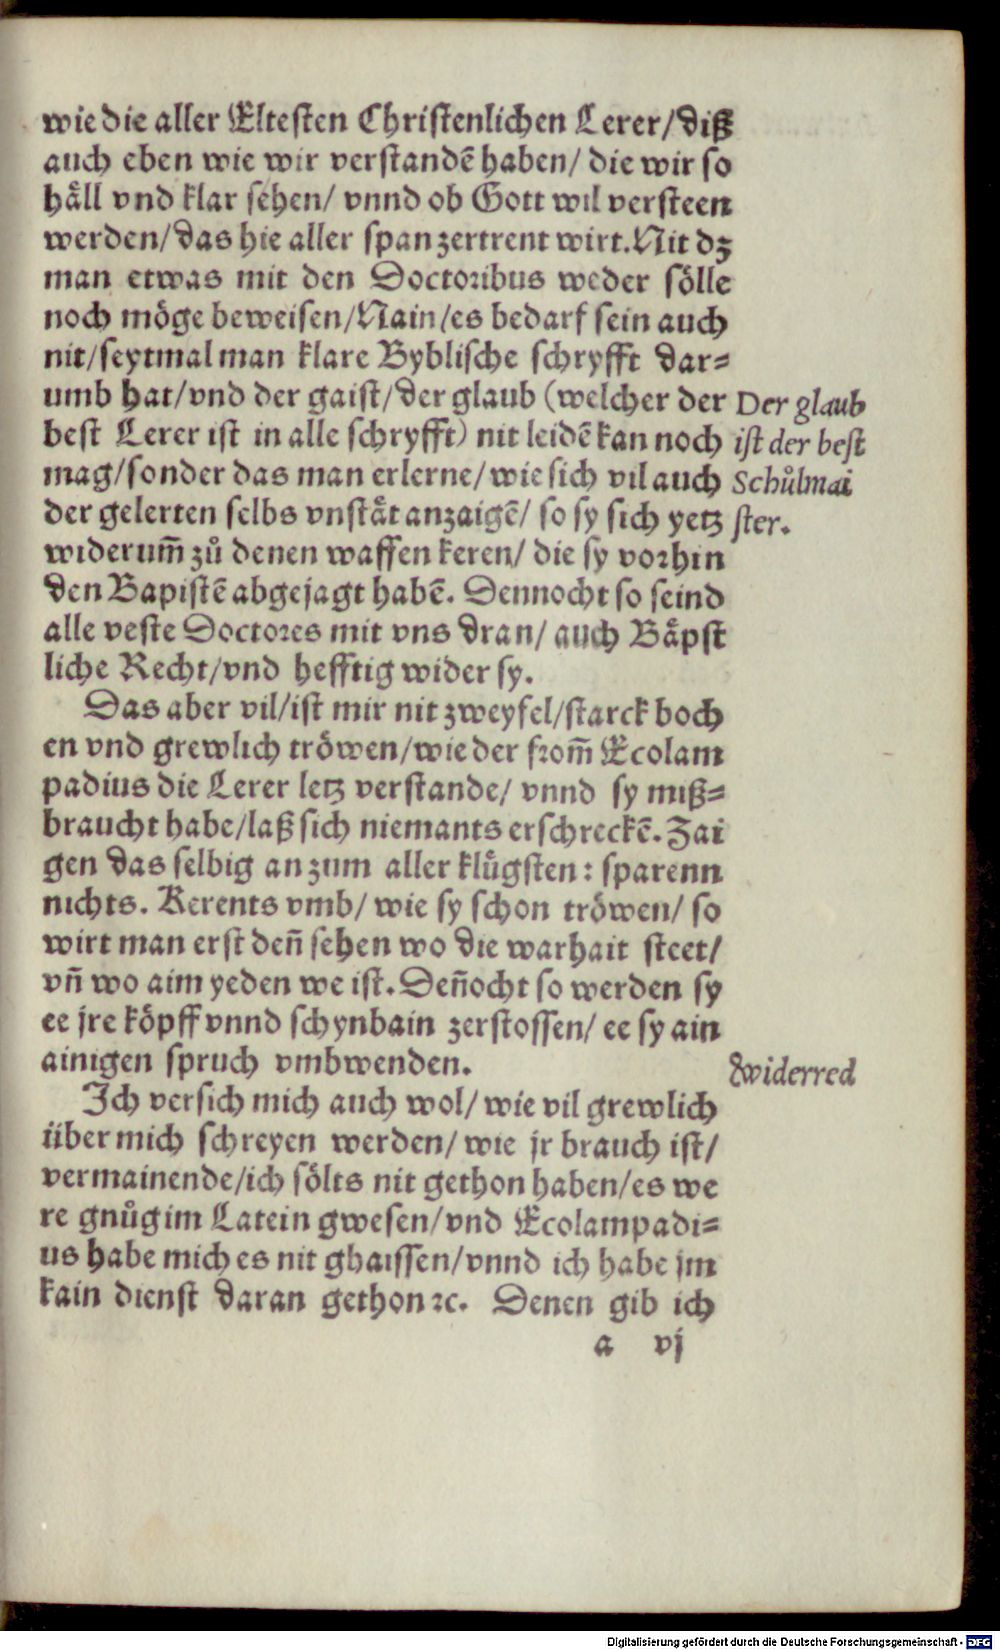 wie die aller Eltesten Christenlichen Lerer/diß
auch eben wie wir verstandē haben/ die wir so
håll vnd klar sehen/ vnnd ob Gott wil versteen
werden/das hie aller span zertrent wirt. Nit dz
man etwas mit den Doctoribus weder sölle
noch möge beweisen/Nain/es bedarf sein auch
nit/seytmal man klare Byblische schryfft dar=
umb hat/vnd der gaist/der glaub (welcher der
best Lerer ist in alle schryfft) nit leidē kan noch
mag/sonder das man erlerne/wie sich vil auch
der gelerten selbs vnståt anzaigē/ so sy sich yetz
widerum̄ zů denen waffen keren/ die sy vorhin
den Bapistē abgejagt habē. Dennocht so seind
alle veste Doctores mit vns dran/ auch Båpst
liche Recht/vnd hefftig wider sy.
Der glaub
ist der best
Schůlmai
ster.
Das aber vil/ist mir nit zweyfel/starck boch
en vnd grewlich tröwen/wie der from̄ Ecolam
padius die Lerer letz verstande/ vnnd sy miß=
braucht habe/laß sich niemants erschreckē. Zai
gen das selbig an zum aller klügsten: sparenn
nichts. Kerents vmb/ wie sy schon tröwen/ so
wirt man erst den̄ sehen wo die warhait steet/
vn̄ wo aim yeden we ist. Den̄ocht so werden sy
ee jre köpff vnnd schynbain zerstossen/ ee sy ain
ainigen spruch vmbwenden.
Ich versich mich auch wol/ wie vil grewlich
über mich schreyen werden/ wie jr brauch ist/
vermainende/ich sölts nit gethon haben/es we
re gnůg im Latein gwesen/vnd Ecolampadi=
us habe mich es nit ghaissen/vnnd ich habe jm
kain dienst daran gethon ꝛc. Denen gib ich
widerred
a vj
Digitalisierung gefördert durch die Deutsche Forschungsgemeinschaft - DFG